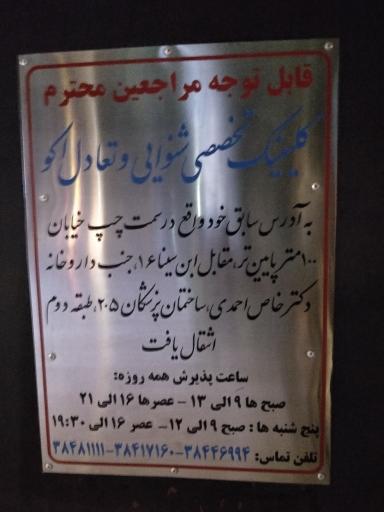 قابل توجه مراجعین محترم
کلینیک تخصصی شنوایی و تعادل اکو
به آدرس سابق خود واقع در سمت چپ خیابان
۱۰۰ متر پایین تر، مقابل ابن سینا ۱۶، جنب داروخانه
دکتر خاص احمدی، ساختمان پزشکان ۲۰۵، طبقه دوم
انتقال یافت
ساعت پذیرش همه روزه:
صبح ها ۹ الی ۱۳ - عصرها ۱۶ الی ۲۱
پنج شنبه ها : صبح ۹ الی ۱۲ - عصر ۱۶ الی ۱۹:۳۰
تلفن تماس: ۳۸۴۴۶۹۹۴-۳۸۴۱۷۱۶۰-۳۸۴۸۱۱۱۱